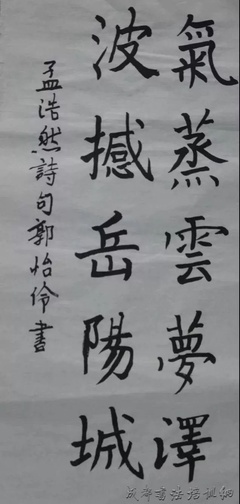 氣蒸雲夢澤
波撼岳陽城
孟浩然詩句郭怡伶書
成都書法培訓網